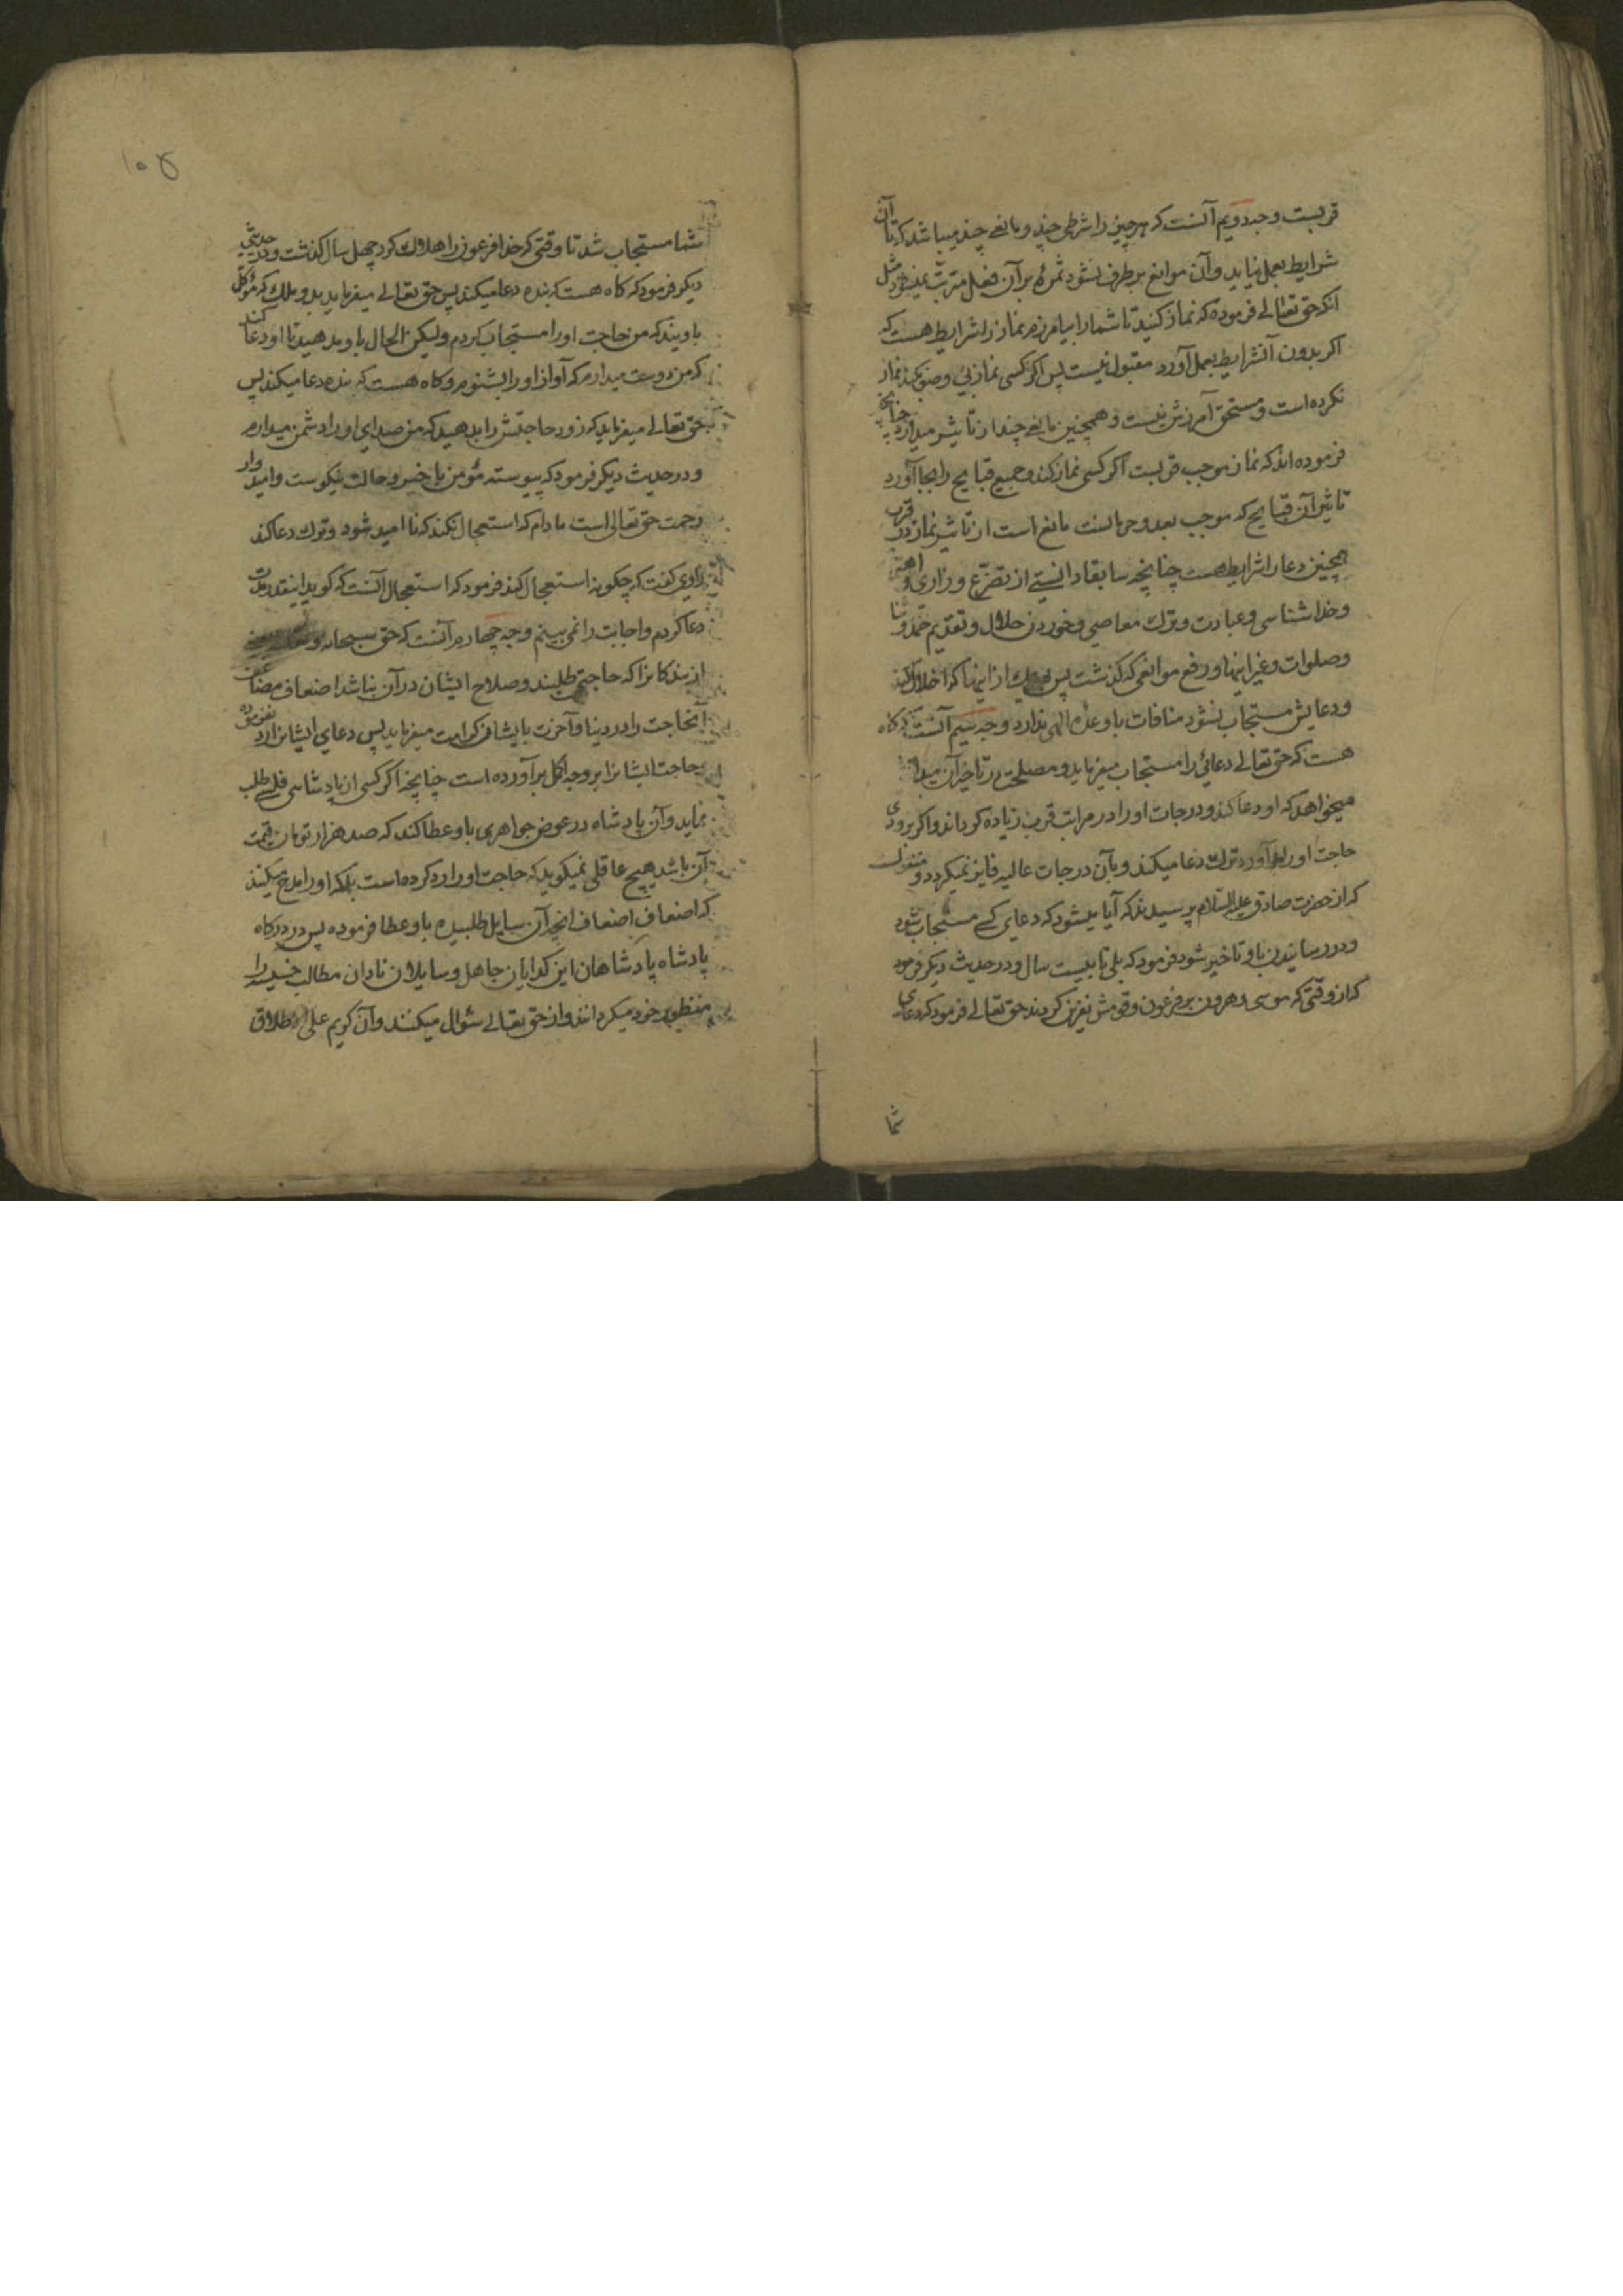 قربست وجه دویم آنست که هر چیز را شرطی چند و مانعی چند میباشد که تا آن
شرایط بعمل نیاید و آن موانع برطرف نشود ثمره بر آن فعل مترتب نمیشود مثل
آنکه حق تعالی فرموده که نماز کنید تا شما را بیامرزم نماز را شرایط هست که
اگر بدون آنشرایط بعمل آورد مقبول نیست پس اگر کسی نماز بی وضو بکند نماز
نکرده است و مستحق آمرزش نیست و همچنین مانعی چند از تاثیر میدارد چنانچه
فرموده اند که نماز موجب قربست اگر کسی نماز کند و جمیع قبایح را بجا آورد
تاثیر آن قبایح که موجب بعد و حرمانست مانع است از تاثیر نماز در قرب
همچنین دعا را شرایط هست چنانچه سابقا دانستی از تضرع و زاری و اهتمام
و خدا شناسی و عبادت و ترک معاصی و خوردن حلال و تقدیم حمد و ثنا
و صلوات و غیر اینها و رفع موانعی که گذشت پس بهر یک از اینها که اخلال کند
و دعایش مستجاب نشود منافات با وعده الهی ندارد وجه سیم آنست که گاه
هست که حق تعالی دعائی را مستجاب میفرماید و مصلحت در تاخیر آن میداند
میخواهد که او دعا کند و درجات او را در مراتب قرب زیاده گرداند و اگر بزودی
حاجت او را برآورد ترک دعا میکند و بآن درجات عالیه فایز نمیگردد و منقولست
که از حضرت صادق علیه السلام پرسیدند که آیا میشود که دعای کسی مستجاب شود
و در رسانیدن باو تاخیر شود فرمود که بلی تا بیست سال و در حدیث دیگر فرمود
که از وقتی که موسی و هرون بر فرعون و قومش نفرین کردند حق تعالی فرمود که دعای
شما
۱۰۵
شما مستجاب شد تا وقتی که خدا فرعون را هلاک کرد چهل سال گذشت و در حدیثی
دیگر فرمود که گاه هست که بنده دعا میکند پس حق تعالی میفرماید بدو ملک که موکل
باویند که من حاجت او را مستجاب کردم ولیکن الحال باو مدهید تا او دعا کند
که من دوست میدارم که آواز او را بشنوم و گاه هست که بنده دعا میکند پس
حق تعالی میفرماید که زود حاجتش را بدهید که من صدای او را دشمن میدارم
و در حدیث دیگر فرمود که پیوسته مؤمن با خیر و حالت نیکوست و امیدوار
رحمت حق تعالی است مادام که استعجال نکند که نا امید شود و ترک دعا کند
راوی گفت که چگونه استعجال کند فرمود که استعجال آنست که گوید اینقدر مدت
دعا کردم و اجابت را نمی بینم وجه چهارم آنست که حق سبحانه و تعالی بعضی
از بندگانرا که حاجتی طلبند و صلاح ایشان در آن نباشد اضعاف مضاعف
آنحاجت را در دنیا و آخرت بایشان کرامت میفرماید پس دعای ایشانرا رد نفرموده
حاجت ایشانرا بر وجه اکمل برآورده است چنانچه اگر کسی از پادشاهی فلسی طلب
نماید و آن پادشاه در عوض جواهری باو عطا کند که صد هزار تومان قیمت
آن باشد هیچ عاقلی نمیگوید که حاجت او را رد کرده است بلکه او را مدح میکنند
که اضعاف اضعاف آنچه آن سایل طلبیده باو عطا فرموده پس در درگاه
پادشاه پادشاهان این گدایان جاهل و سایلان نادان مطالب خسیسه را
منظور خود میگردانند و از حق تعالی سئوال میکنند و آن کریم علی الاطلاق